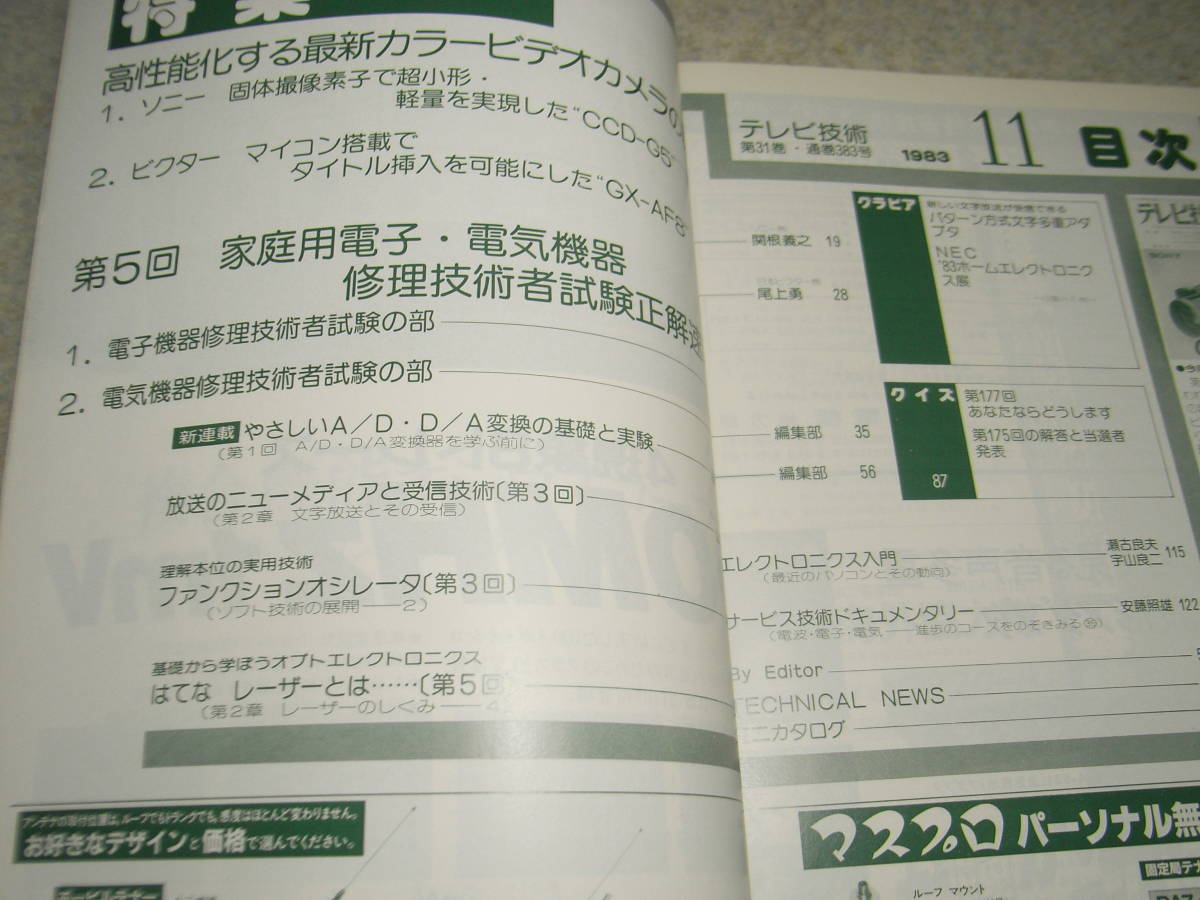 特集
高性能化する最新カラービデオカメラの
1. ソニー 固体撮像素子で超小形・
軽量を実現した"CCD-G5"
2. ビクター マイコン搭載で
タイトル挿入を可能にした"GX-AF8"
第5回 家庭用電子・電気機器
修理技術者試験正解速
1. 電子機器修理技術者試験の部
2. 電気機器修理技術者試験の部
新連載 やさしいA/D・D/A変換の基礎と実験
(第1回 A/D・D/A変換器を学ぶ前に)
放送のニューメディアと受信技術〔第3回〕
(第2章 文字放送とその受信)
理解本位の実用技術
ファンクションオシレータ〔第3回〕
(ソフト技術の展開——2)
基礎から学ぼうオプトエレクトロニクス
はてな レーザーとは……〔第5回〕
(第2章 レーザーのしくみ——4)
アンテナの取付位置は、ルーフでもトランクでも、感度はほとんど変わりません。
お好きなデザインと価格で選んでください。
テレビ技術
第31巻・通巻383号
1983 11 目次
関根義之 19
尾上勇 28
編集部 35
編集部 56
グラビア
新しい文字放送が受信できる
パターン方式文字多重アダ
プタ
NEC
'83ホームエレクトロニク
ス展
クイズ
第177回
あなたならどうします
第175回の解答と当選者
発表
87
エレクトロニクス入門
(最近のパソコンとその動向)
瀬古良夫
宇山良二 115
サービス技術ドキュメンタリー
安藤照雄 122
(電波・電子・電気——進歩のコースをのぞきみる㊴)
By Editor
TECHNICAL NEWS
ミニカタログ
マスプロ パーソナル無
固定局テナ
ルーフ マウント
テレビ技
SONY